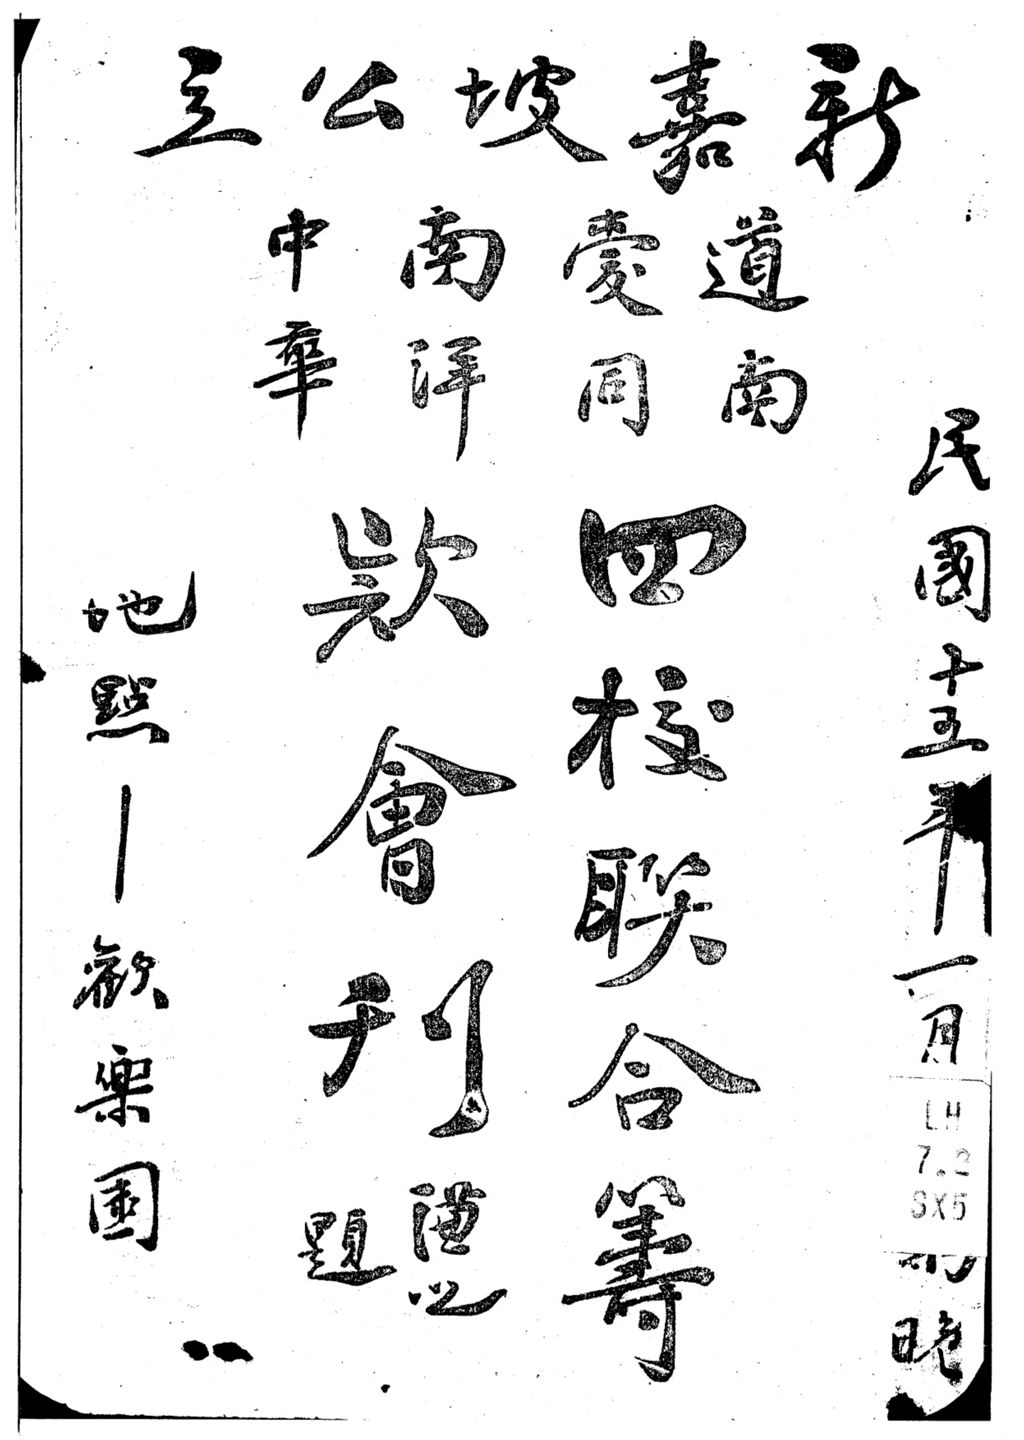 新嘉坡公立
道南
愛同
南洋
中華
民國十五年一月
LH
7.2
SX5
晚
四校聯合籌
欵會刊
題
地點—歡樂園